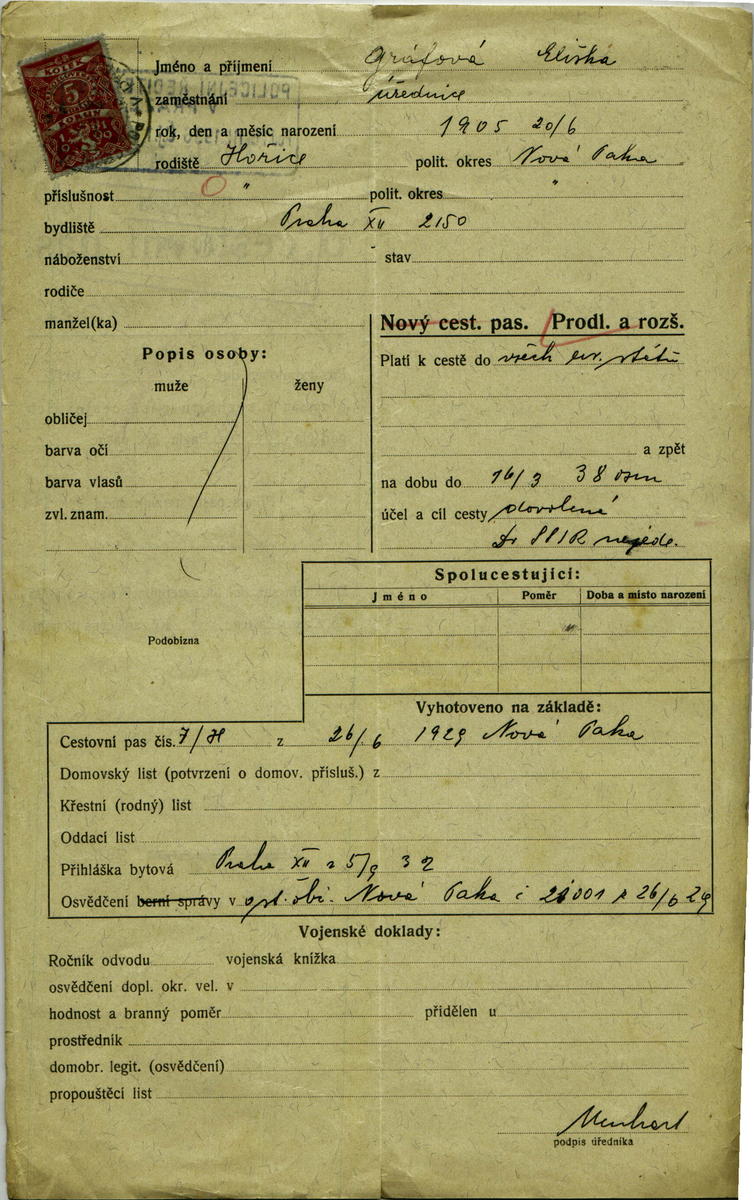 KOLEK
5
KORUN
Jméno a příjmení Gráfová Eliška
zaměstnání úřednice
rok, den a měsíc narození 1905 20/6
rodiště Hořice polit. okres Nová Paka
příslušnost " polit. okres "
bydliště Praha XII 2150
náboženství stav
rodiče
manžel(ka)
Nový cest. pas. Prodl. a rozš.
Popis osoby:
muže ženy
obličej
barva očí
barva vlasů
zvl. znam.
Platí k cestě do všech evr. států
a zpět
na dobu do 16/3 38 osm
účel a cíl cesty dovolená
Do SSSR nejede.
Spolucestující:
Jméno Poměr Doba a místo narození
Podobizna
Vyhotoveno na základě:
Cestovní pas čís. 7/H z 26/6 1929 Nová Paka
Domovský list (potvrzení o domov. přísluš.) z
Křestní (rodný) list
Oddací list
Přihláška bytová Praha XII z 5/9 32
Osvědčení berní správy v Nová Paka č 26/6 29
Vojenské doklady:
Ročník odvodu vojenská knížka
osvědčení dopl. okr. vel. v
hodnost a branný poměr přidělen u
prostředník
domobr. legit. (osvědčení)
propouštěcí list
Menhart
podpis úředníka